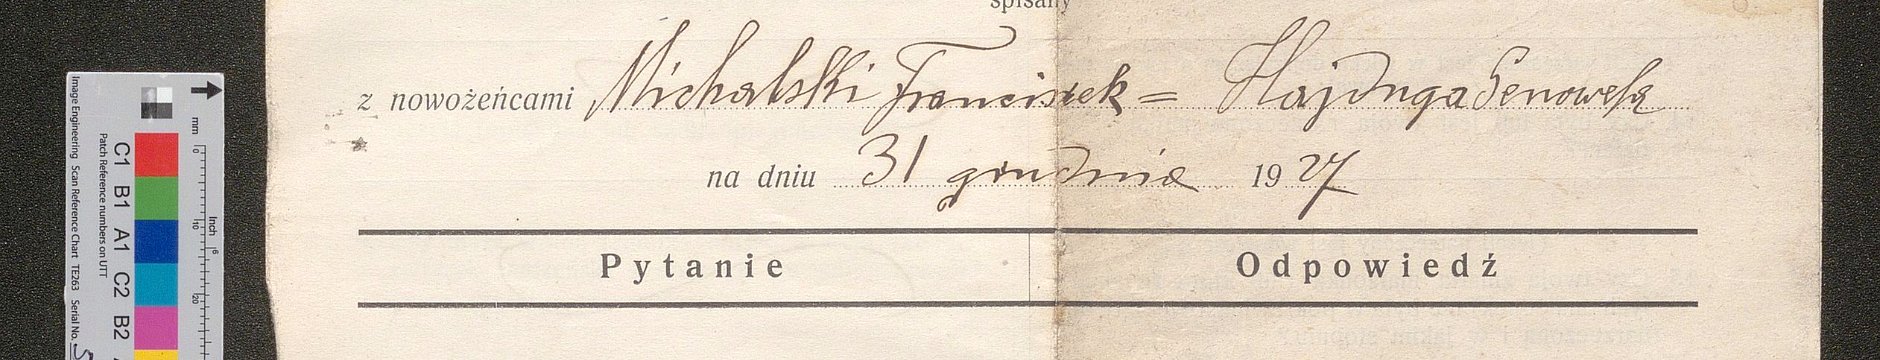 spisany
z nowożeńcami Michalski Franciszek = Hajduga Genowefa
na dniu 31 grudnia 1927
Pytanie Odpowiedź
Image Engineering Scan Reference Chart TE263 Serial No.
Patch Reference numbers on UTT
C1 B1 A1 C2 B2
mm 0 10 20
inch